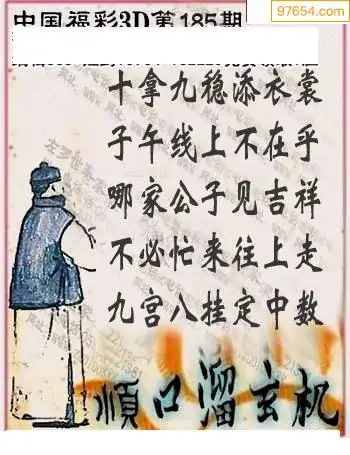 中国福彩3D第185期
97654.com
十拿九稳添衣裳
子午线上不在乎
哪家公子见吉祥
不必忙来往上走
九宫八挂定中数
順口溜玄机